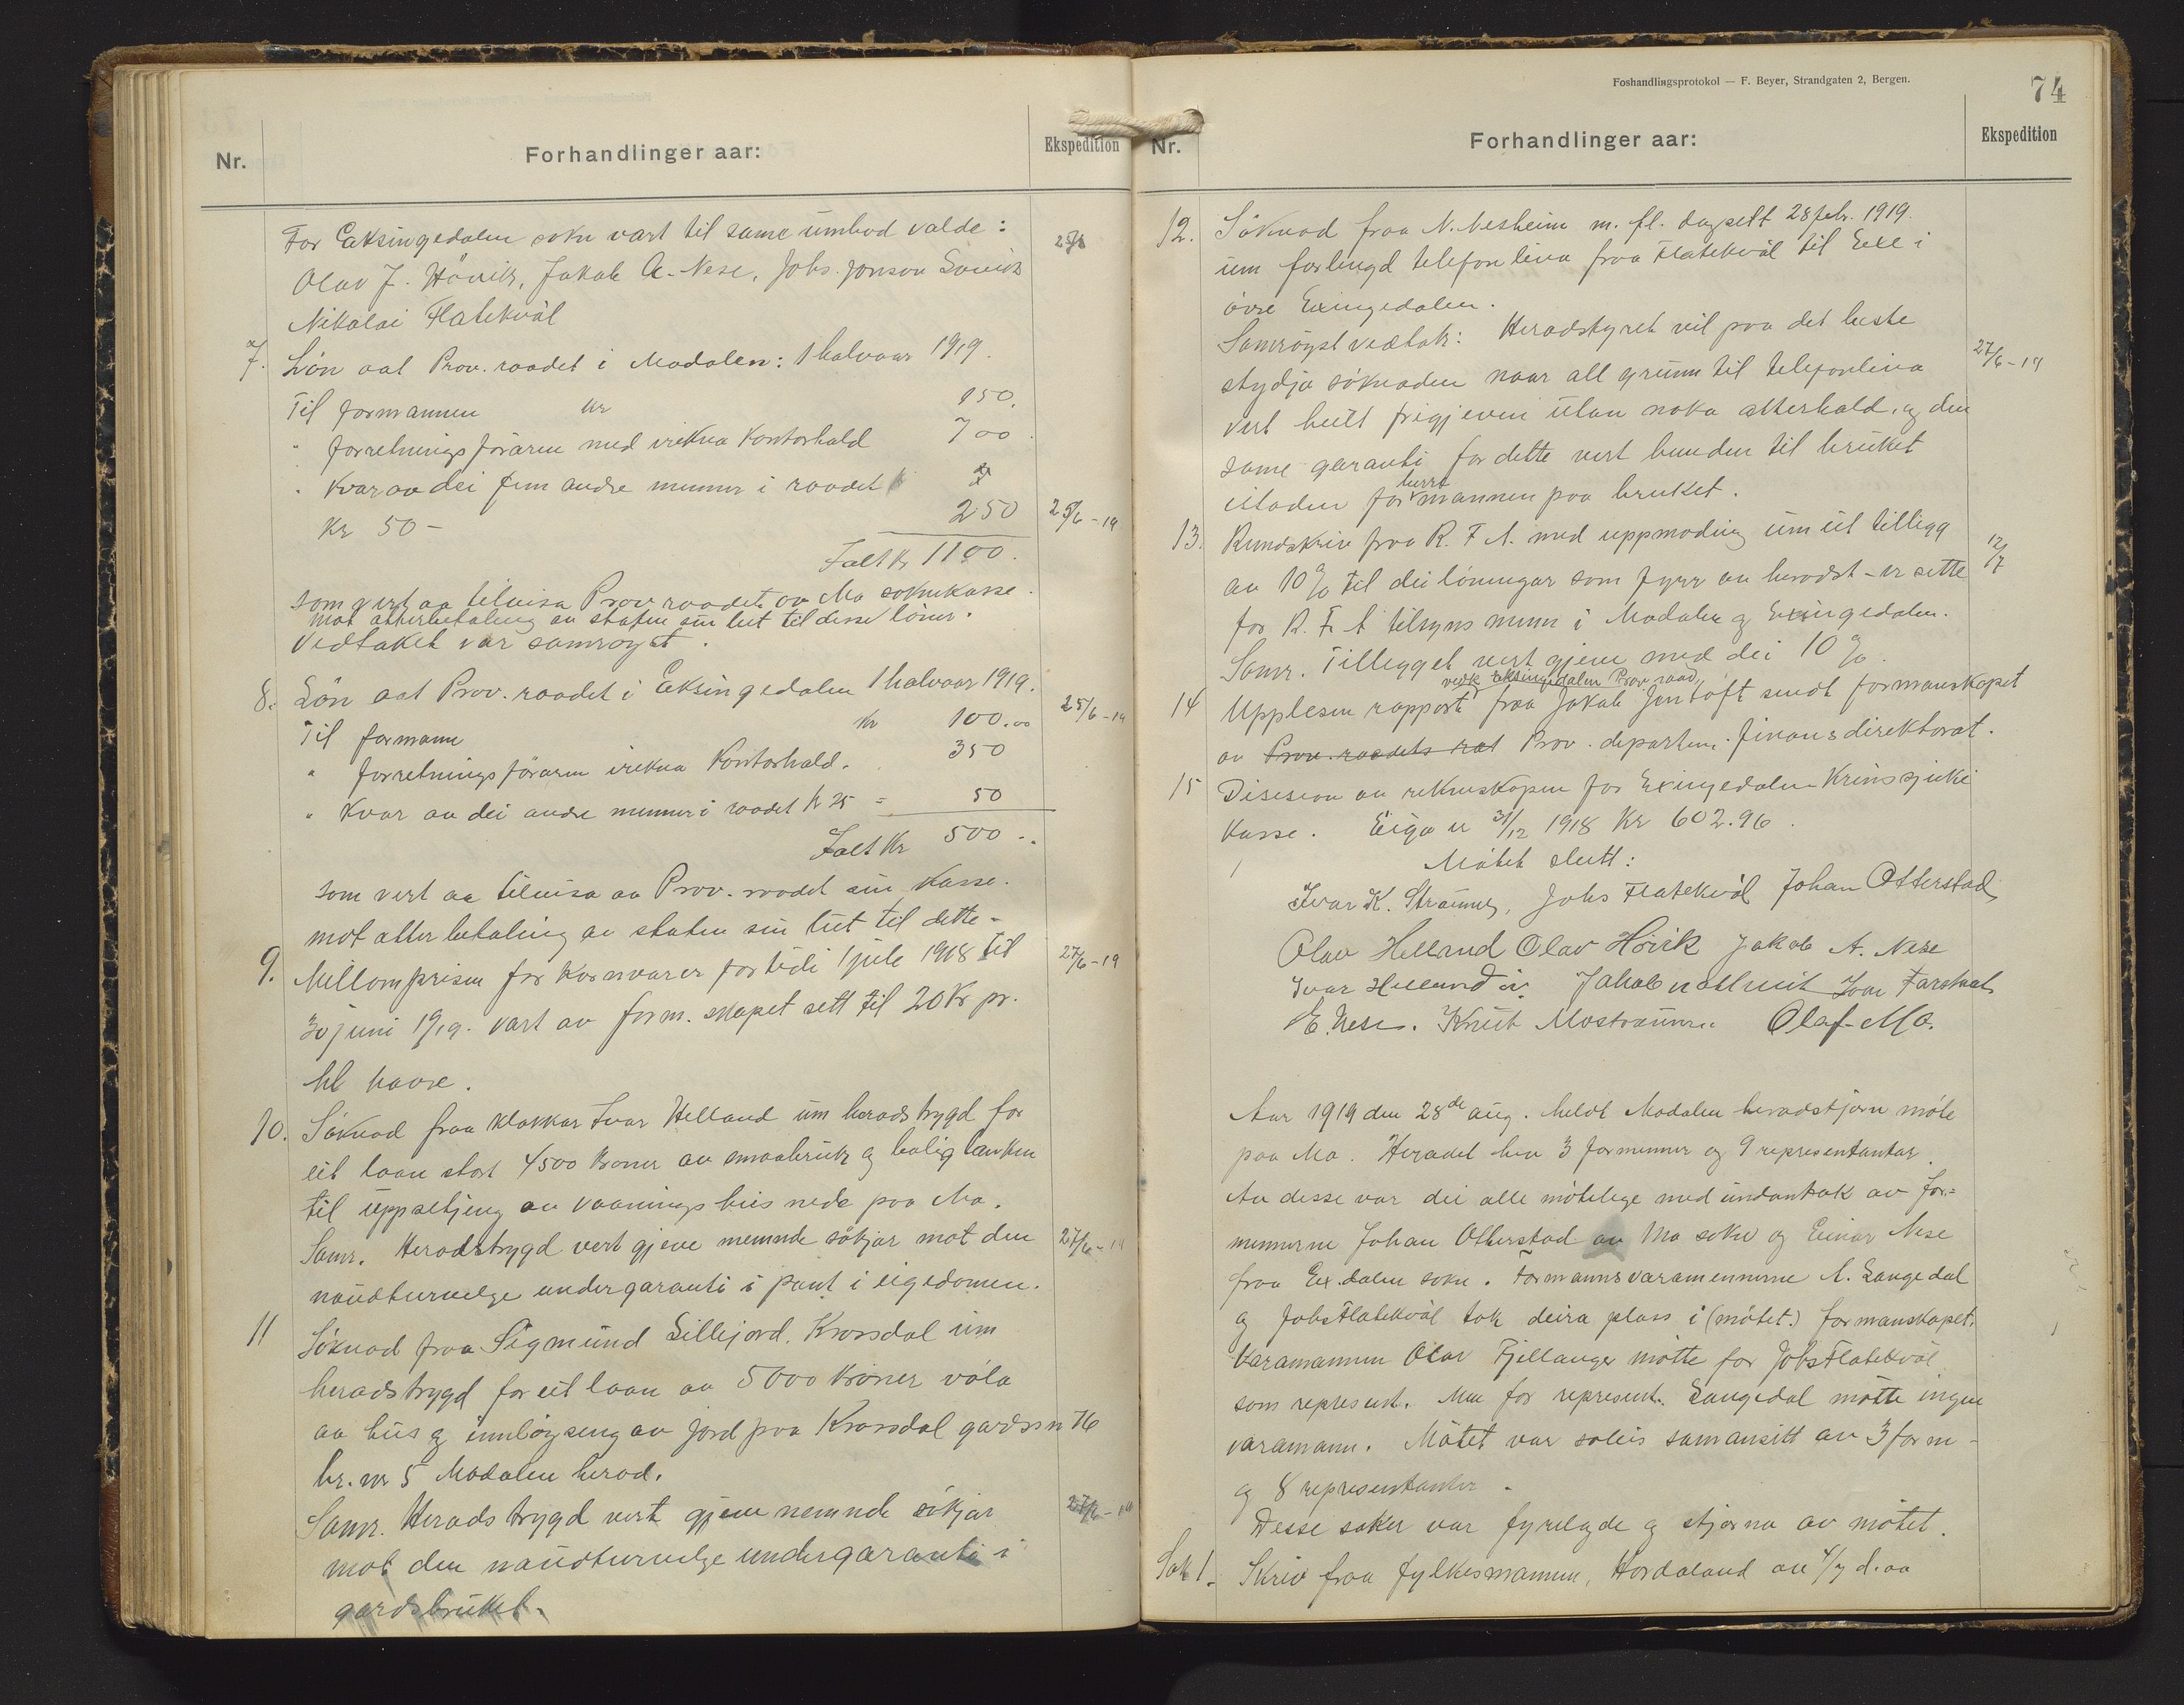 Nr.
Forhandlinger aar:
Ekspedition
For Eksingedalen sokn vart til same umbod valde:
Olav J. Hövik, Jakob A. Nese, Johs. Jonson
Nikolai Flatekvål
7. Lön aat Prov. raadet i Modalen: 1 halvaar 1919.
Til formannen kr 150.
" forretningsföraren med irekna Kontorhald 700
" Kvar av dei fem andre menner i raadet
Kr 50 - 250 25/6-19
Ialt kr 1100.
som vert aa tilvisa Prov raadet av Mo soknekasse.
mot atterbetaling av staten sin lut til desse löner.
Vedtaket var samröystt.
8. Lön aat Prov. raadet i Eksingedalen 1 halvaar 1919.
Til formann kr 100.00 25/6-19
" forretningsföraren irekna Kontorhald. 350
" Kvar av dei andre menner i raadet kr 25 = 50
Ialt kr 500 -.
som vert aa tilvisa av Prov. raadet sin kasse.
mot atterbetaling av staten sin lut til dette.
9. Millomprisen for kornvarer for tidi 1 juli 1918 til 27/6-19
30 juni 1919. vart av form. skapet sett til 20 Kr pr.
hl havre.
10. Söknad fraa klokkar Ivar Helland um heradstrygd for
eit laan stort 4500 kroner av smaabruk og boligbanken
til uppsetjing av vaaningshus nede paa Mo.
Samr. Heradstrygd vert gjeve nemnde søkjar mot den 27/6-19
naudturvelge undergaranti i pant i eigedomen.
11 Söknad fraa Sigmund Lillejord, Krossdal um
heradstrygd for eit laan av 5000 kroner
av hus og innlöysing av jord paa Krossdal gardsn 76
br. nr 5 Modalen herad.
Samr. Herads trygd vert gjeve nemnde søkjar 27/6-19
mot den naudturvelge undergaranti i
gardsbruket.
Foshandlingsprotokol — F. Beyer, Strandgaten 2, Bergen.
74
Nr.
Forhandlinger aar:
Ekspedition
12. Söknad fraa N. Nesheim m. fl. dagsett 28 febr. 1919.
um forlengd telefonlina fraa Flatekvål til Exe i
övre Exingedalen.
Samröyst vedtak: Heradstyret vil paa det beste
stydja söknaden naar all grunn til telefonlina 27/6-19
vert heilt frigjeven utan noko atterhald, og den
same garanti for dette vert bunden til bruket
istaden for mannen paa bruket.
13. Rundskriv fraa R. F. A. med uppmoding um eit tillegg 12/7
av 10 % til dei löningar som fyrr av heradst - er sette
for R. F. A tilsyns menn i Modalen og Exingedalen.
Samr. Tillegget vert gjeve med dei 10 %.
vedk Eksingedalen Prov. raad,
14 Upplesen rapport fraa Jakob Jentoft sendt formanskapet
av Prov. raadets Prov. departem. finansdirektorat.
15 Disesion av rekneskapen for Exingedalen Krinssjuke
kasse. Eiga er 31/12 1918 Kr 602.96.
Mötet slutt:
Ivar K. Straume, Johs Flatekvål Johan Otterstad
Olav Helland Olav Hövik Jakob A. Nese
Ivar Helland Ivar Farstveit
E. Nese. Knut Mostraumen Olaf Mo.
Aar 1919 den 28de aug. heldt Modalen heradstjorn möte
paa Mo. Heradet hev 3 formenner og 9 representantar.
Av desse var dei alle mötelege med undantak av for-
mennerne Johan Otterstad av Mo sokn og Einar Nese
fraa Ex.dalen sokn. Formannsvaramennerne A. Langedal
og Johs Flatekvål tok deira plass i (mötet.) formanskapet.
Varamannen Olav Fjellanger mötte for Johs Flatekvål
som represent. Men for represent. Langedal mötte ingen
varamann. Mötet var soleis samansitt av 3 form-
og 8 representanter.
Desse saker var fyrelagde og stjorna av mötet.
Sak 1. Skriv fraa fylkesmannen, Hordaland av 4/7 d. aa